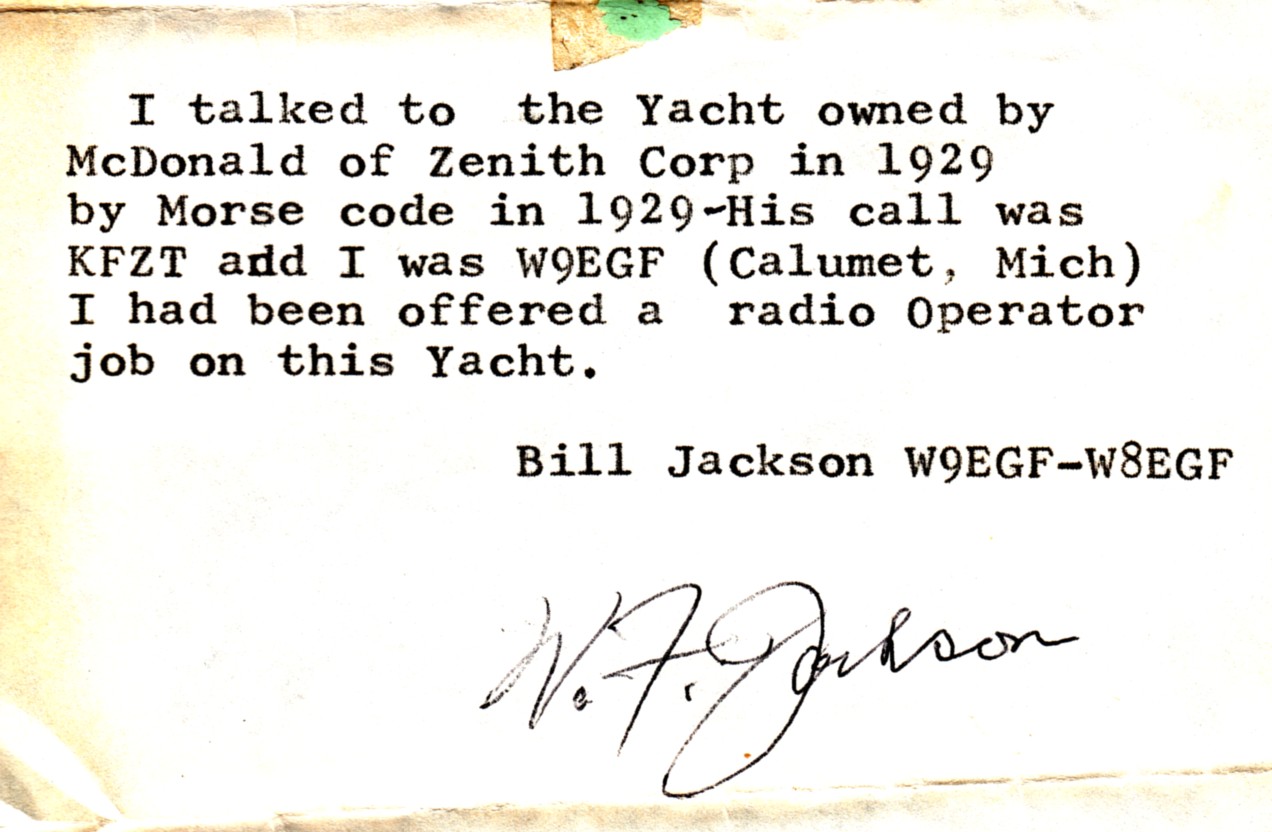 I talked to the Yacht owned by
McDonald of Zenith Corp in 1929
by Morse code in 1929-His call was
KFZT add I was W9EGF (Calumet, Mich)
I had been offered a radio Operator
job on this Yacht.
Bill Jackson W9EGF-W8EGF
W. F. Jackson